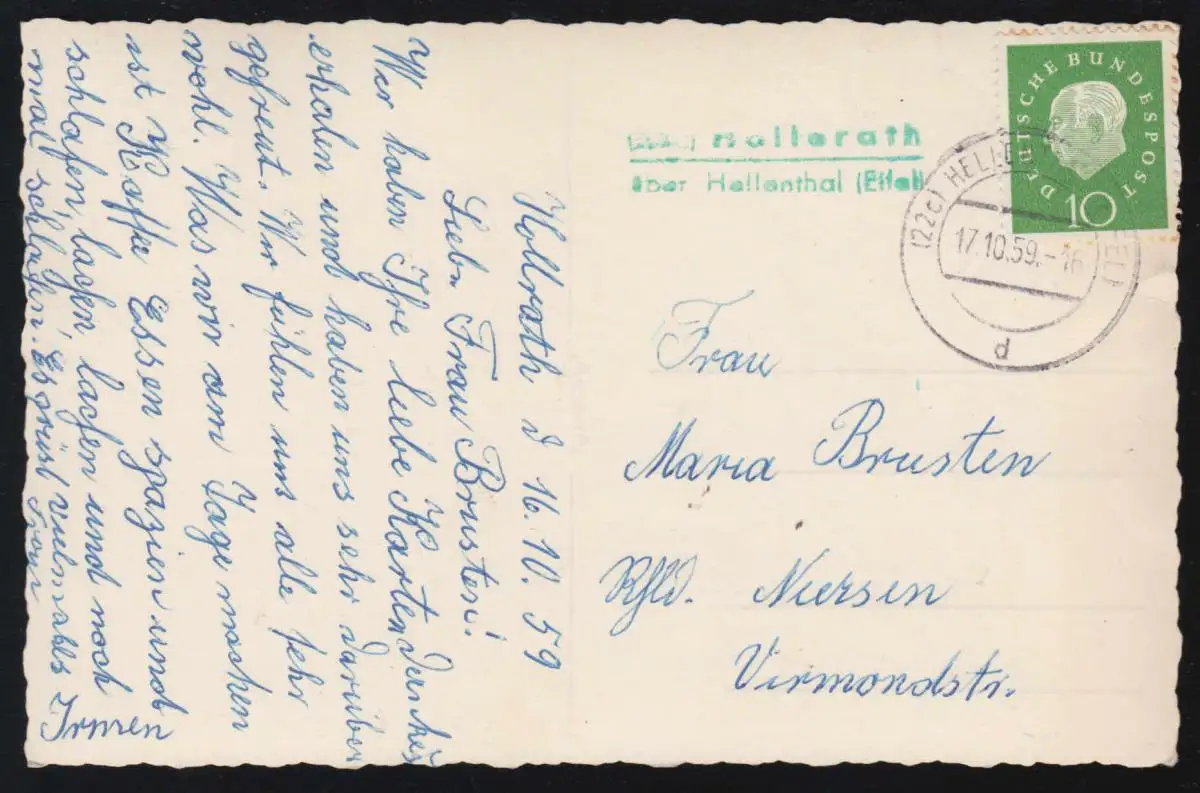 Hollrath d 16.10.59
Liebe Frau Brusten!
Wer haben Ihre liebe Karten
erhalen und haben uns sehr dariber
gefreut. Wir fühlen uns alle sehr
wohl. Was wir am Tage machen
ist Kaffe Essen spazien und
schlafen, lachen, lachen und noch
mal schlafen. Es grüst vielmals
Frau Irmen
Hollerath
über Hellenthal (Eifel)
DEUTSCHE BUNDESPOST
10
(22c) HELLENTHAL (EIFEL)
17.10.59.-16
d
Frau
Maria Brusten
Rhld. Niersen
Virmondstr.